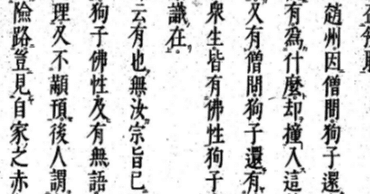 趙州因僧問狗子還
有爲什麼却撞入這
又有僧問狗子還有
衆生皆有佛性狗子
識在
云有也無汝宗旨已
狗子佛性及有無語
理又不顢預後人謂
險路豈見自家之赤